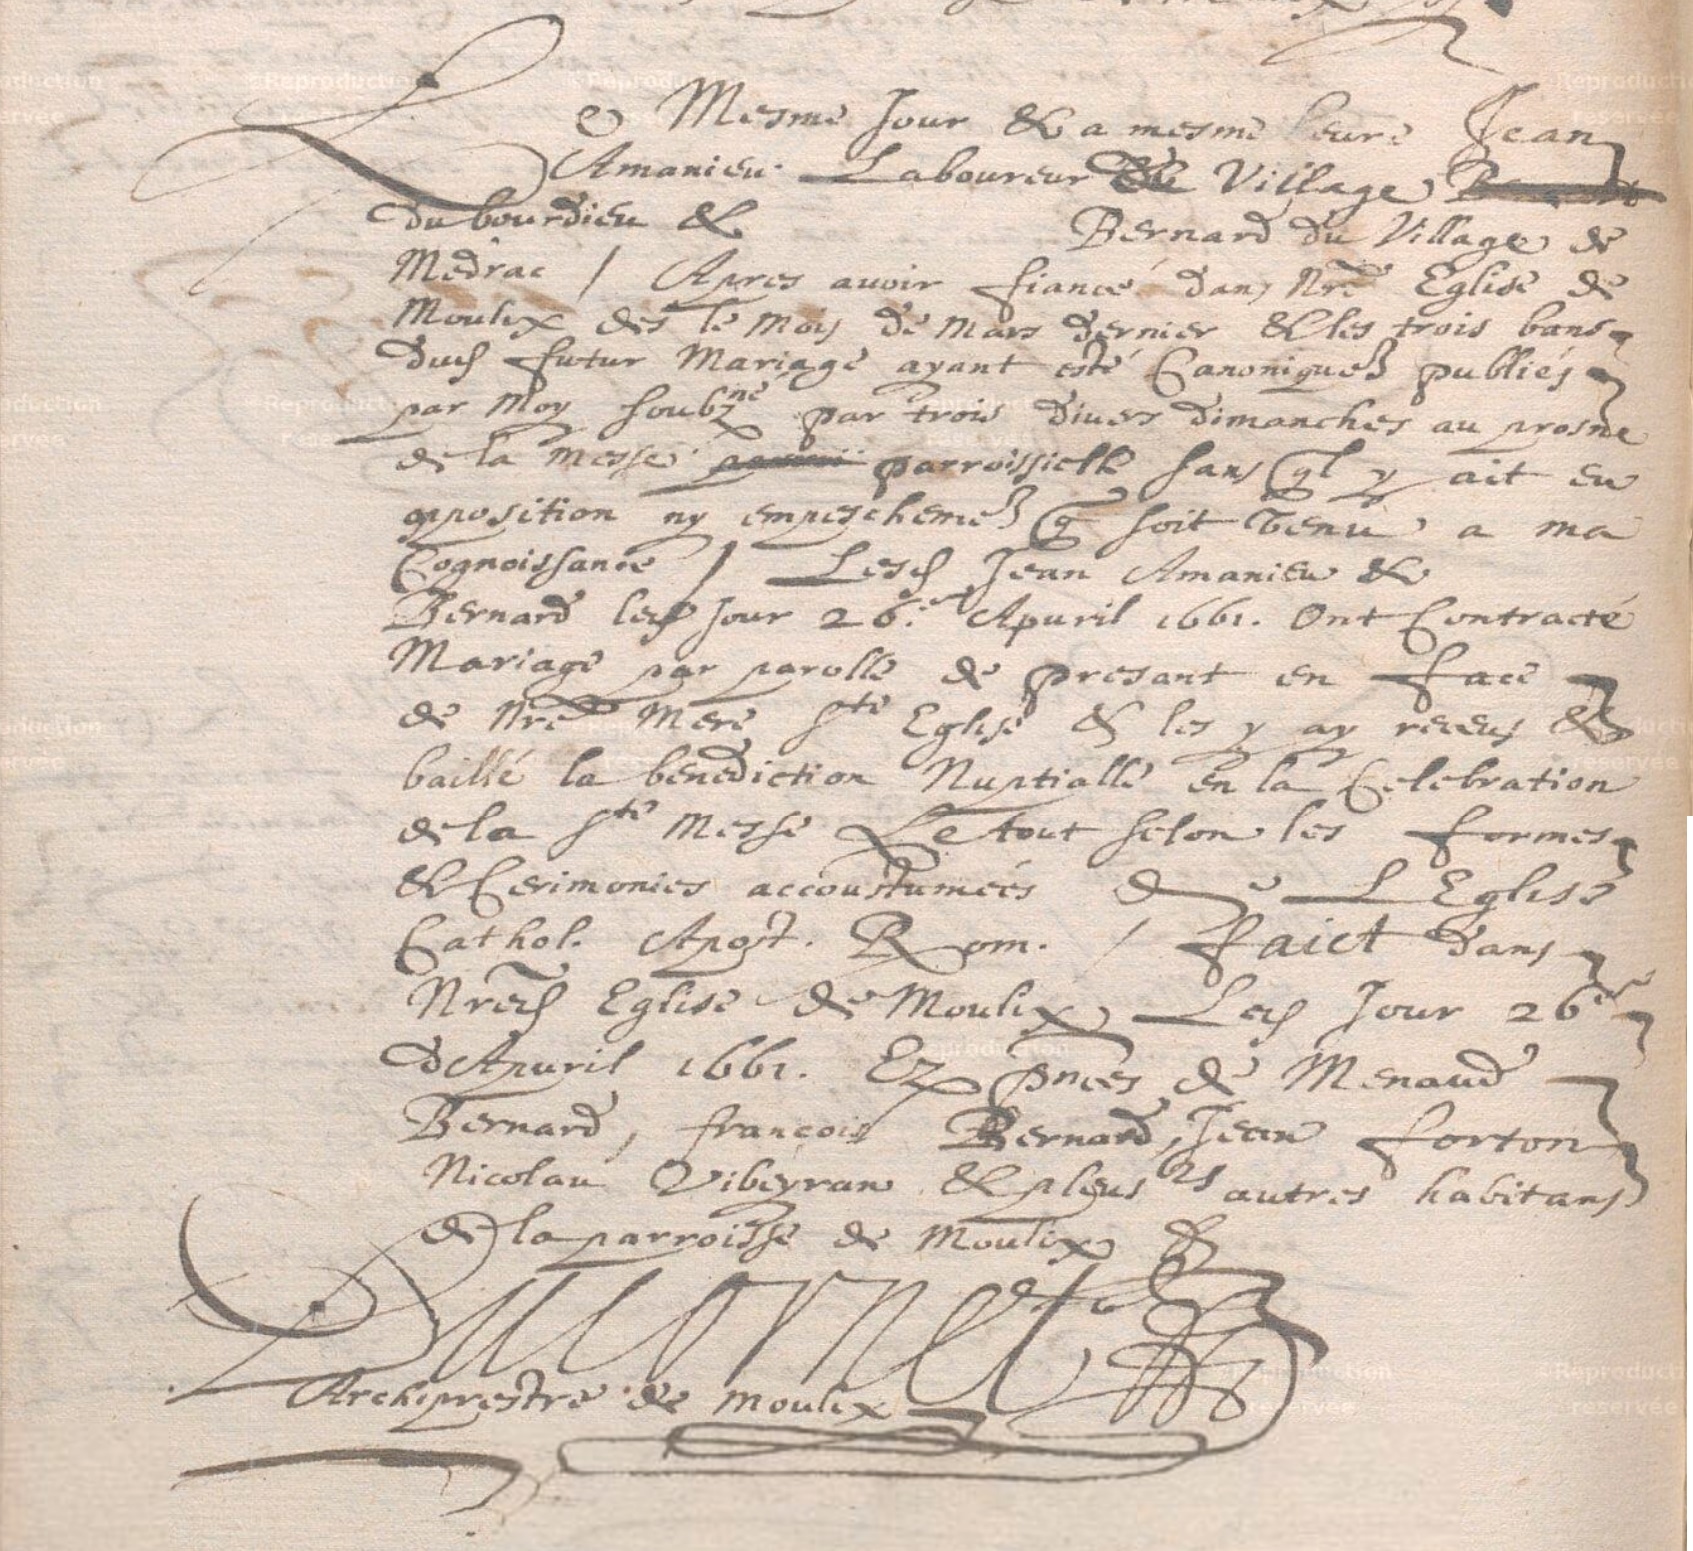 Le Mesme Jour & a mesme heure Jean
Amanieu Laboureur du Village
du bourdieu & Bernard du Village de
Medrac / Apres avoir fiancé dans Nre Eglise de
Moulix des le mois de Mars dernier & les trois bans
dud futur Mariage ayant esté Canoniquet publiés
par Moy soubzne par trois divers dimanches au prosne
de la messe parroissielle sans ql y ait eu
opposition ny empeschemet q soit venu a ma
Cognoissance / Lesd Jean Amanieu &
Bernard led Jour 26.e Apuril 1661. Ont Contracté
Mariage par parolle de presant en face
de Nre Mere Ste Eglise & les y ay receus &
baillé la benediction Nuptialle en la Celebration
de la Ste Messe Le tout selon les formes
& Cerimonies accoustumées de L Eglise
Cathol. Apost. Rom. / Faict dans
Nred Eglise de Moulix Led Jour 26e
dApuril 1661. Ez pnces de Menaud
Bernard, françois Bernard, Jean forton
Nicolau Vibeyran & pleus rs autres habitans
de la parroisse de Moulix &
Archiprestre de moulix